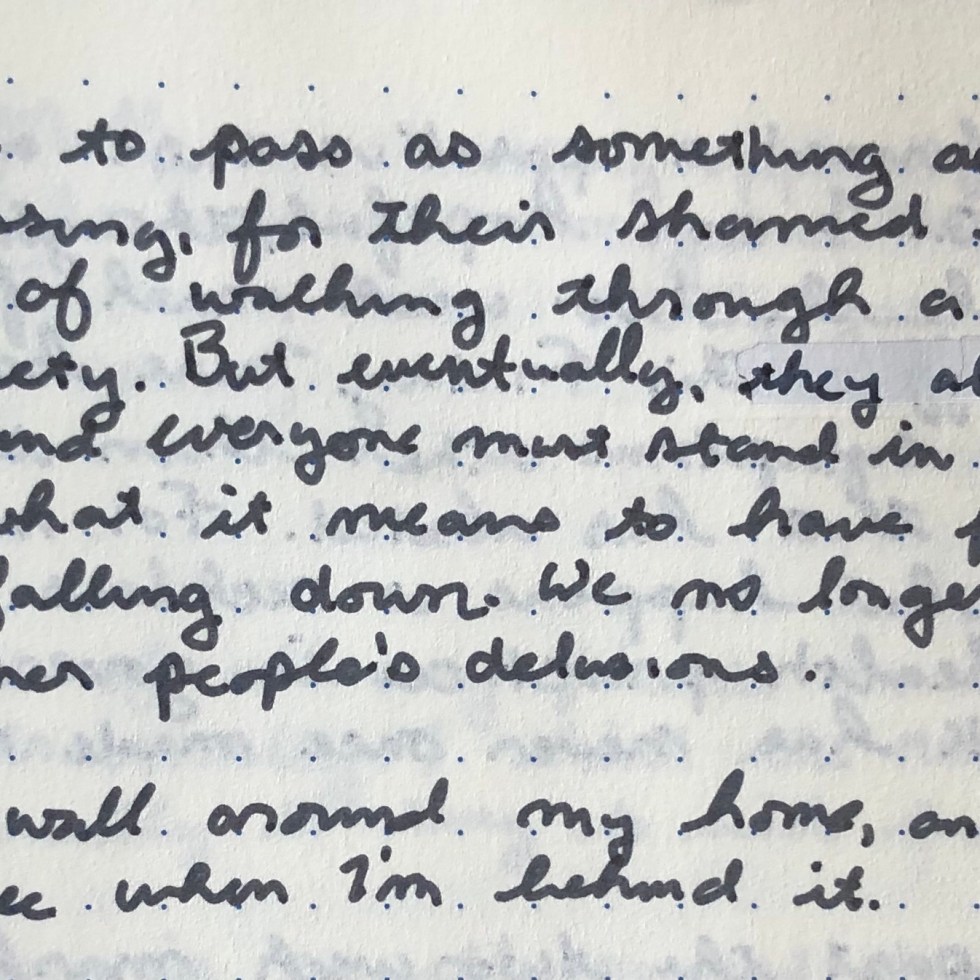 to pass as something as
sing, for their shamed
of walking through a
ety. But eventually, they al
and everyone must stand in
what it means to have
falling down. We no longer
her people's delusions.
wall around my home, an
ee when I'm behind it.